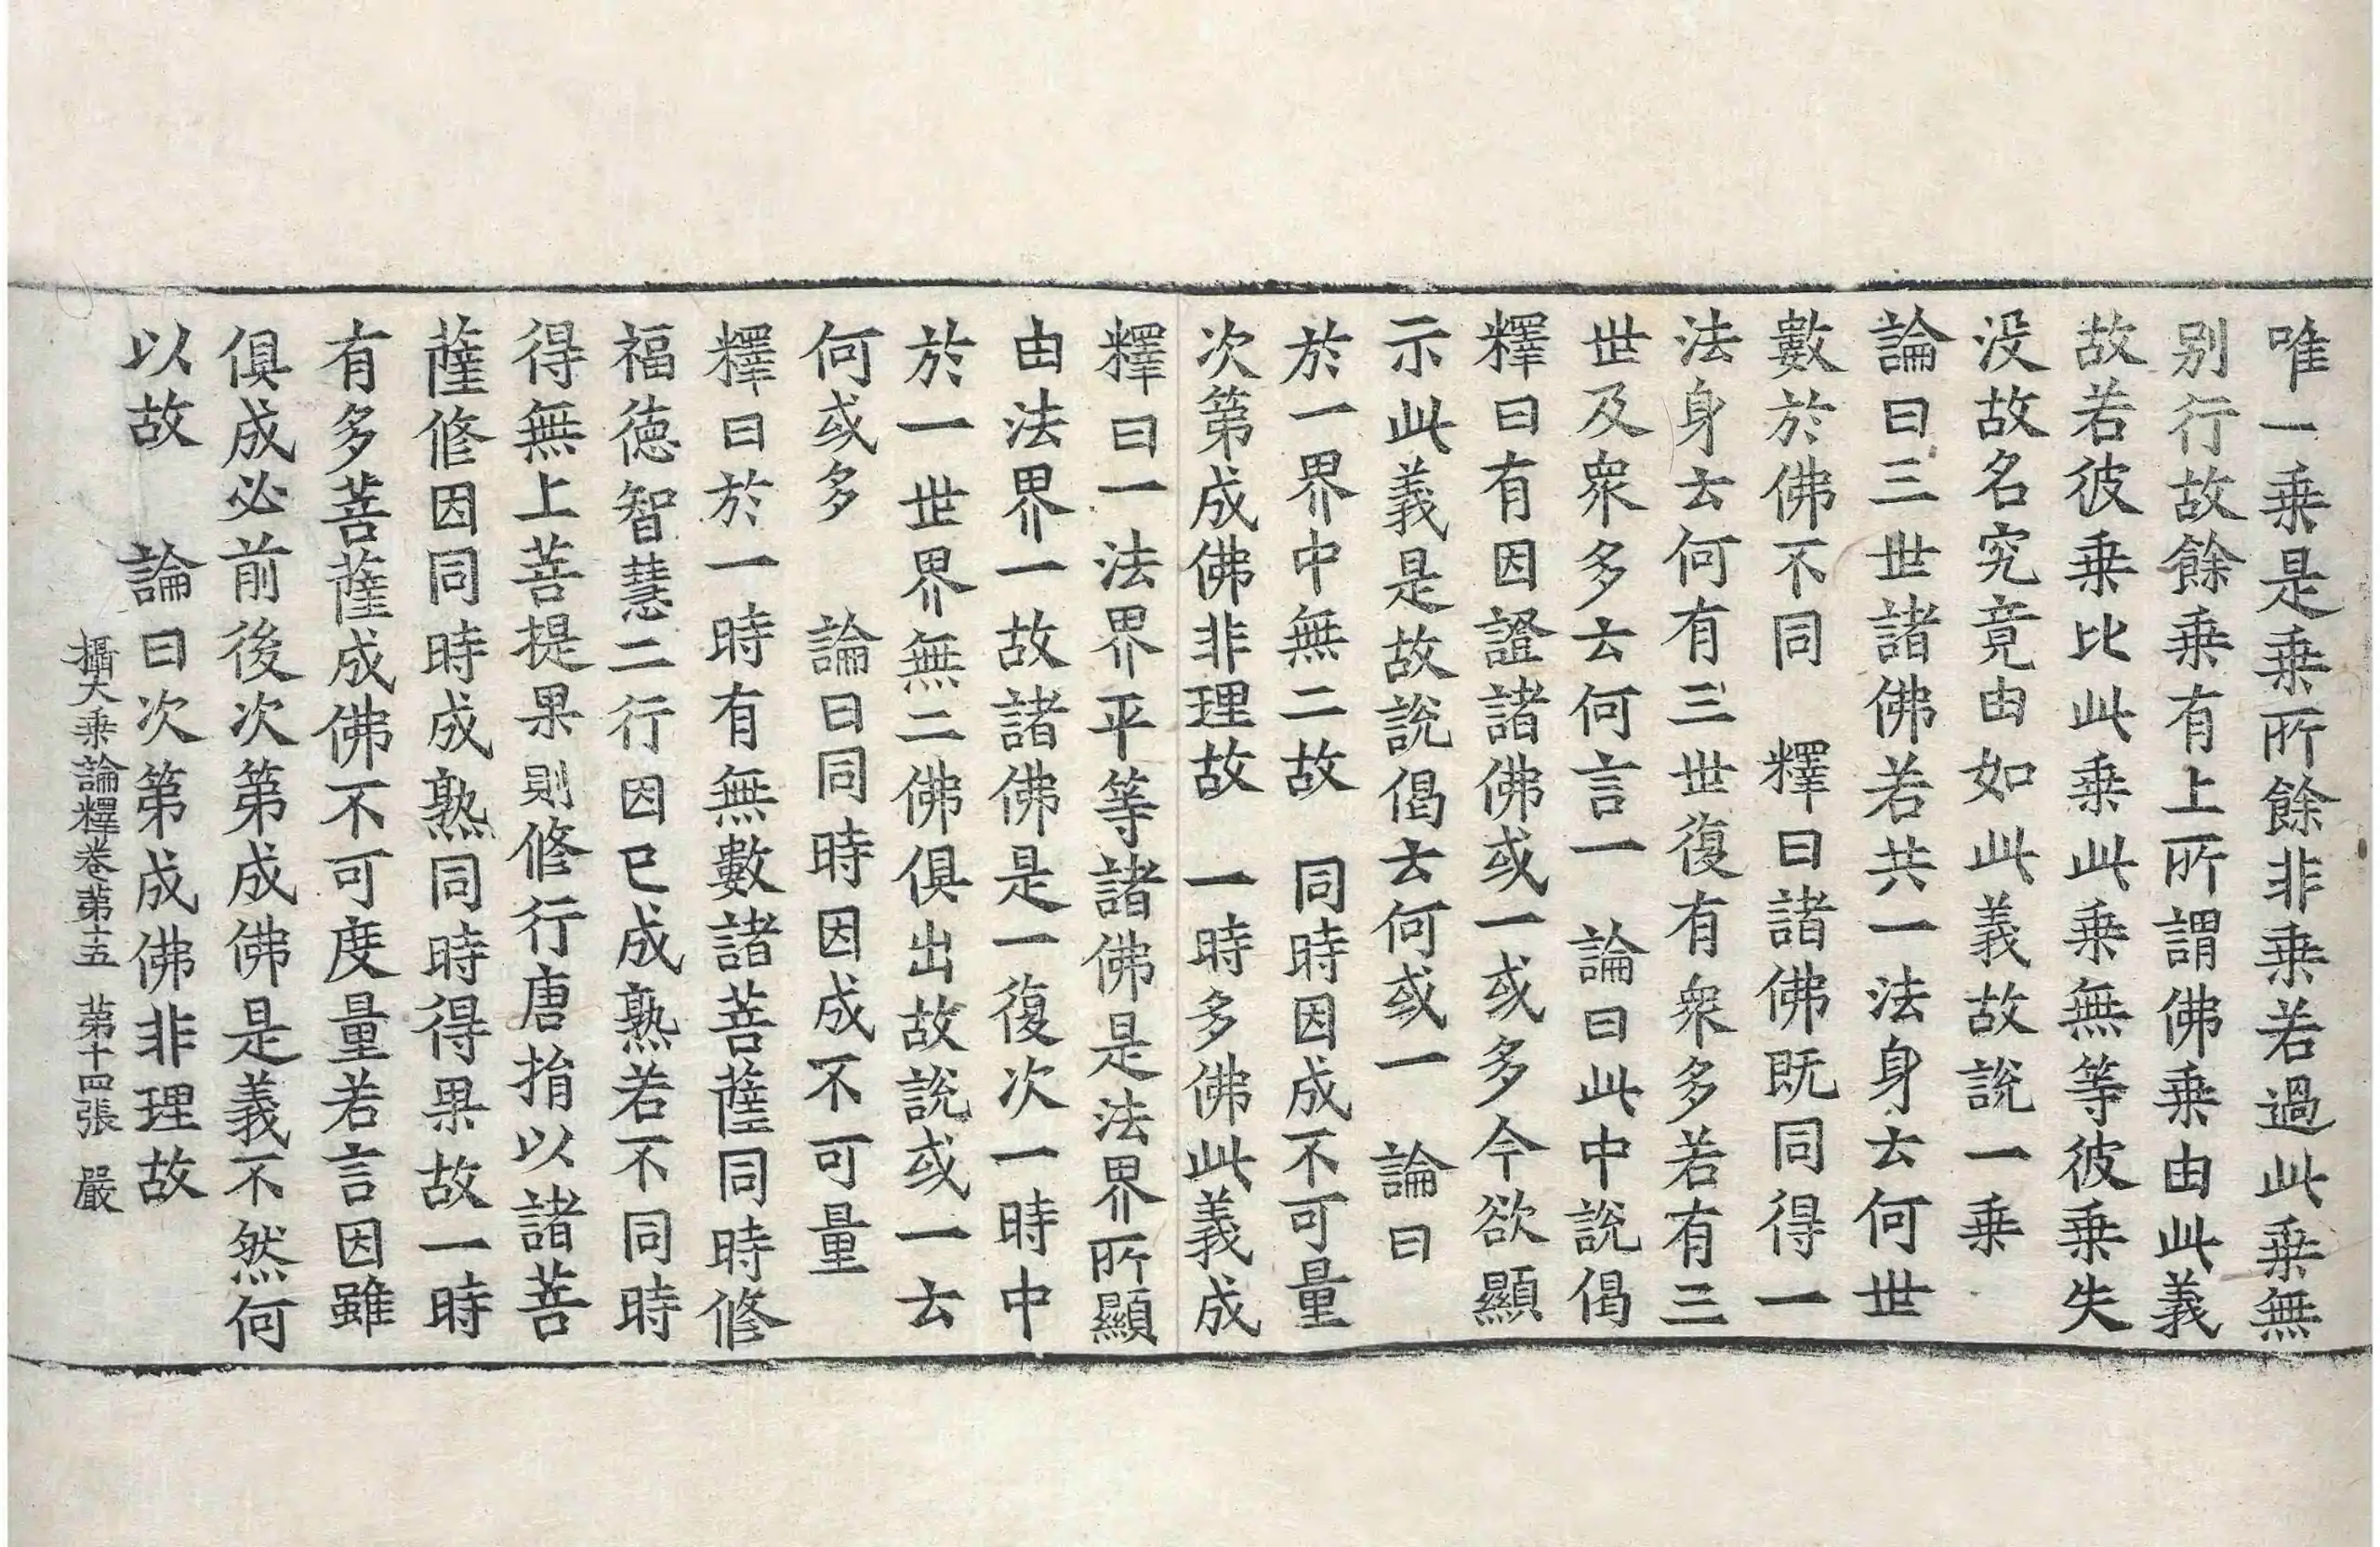 唯一乗是乗所餘非乗若過此乗無
別行故餘乗有上所謂佛乗由此義
故若彼乗比此乗此乗無等彼乗失
没故名究竟由如此義故說一乗
論曰三世諸佛若共一法身云何世
數於佛不同　釋曰諸佛既同得一
法身云何有三世復有衆多若有三
世及衆多云何言一　論曰此中說偈
釋曰有因證諸佛或一或多今欲顯
示此義是故說偈云何或一　論曰
於一界中無二故　同時因成不可量
次第成佛非理故　一時多佛此義成
釋曰一法界平等諸佛是法界所顯
由法界一故諸佛是一復次一時中
於一世界無二佛俱出故說或一云
何或多　論曰同時因成不可量
釋曰於一時有無數諸菩薩同時修
福德智慧二行因已成熟若不同時
得無上菩提果則修行唐捐以諸菩
薩修因同時成熟同時得果故一時
有多菩薩成佛不可度量若言因雖
俱成必前後次第成佛是義不然何
以故　論曰次第成佛非理故
攝大乗論釋卷第十五　第十四張　嚴